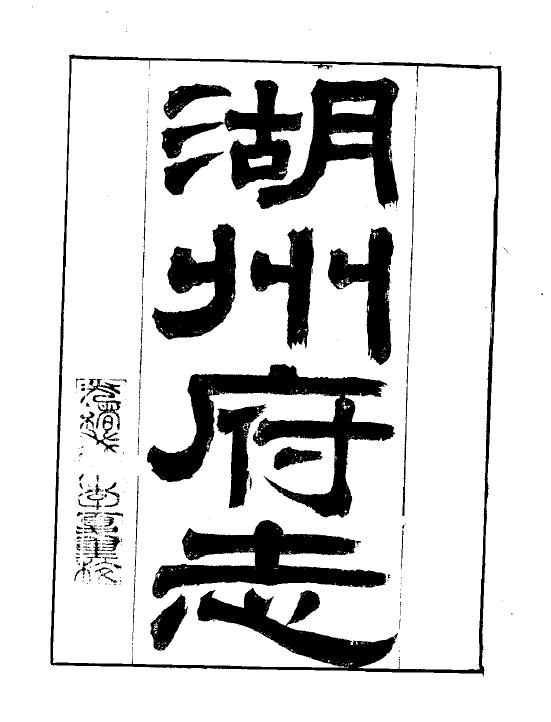 湖州府志